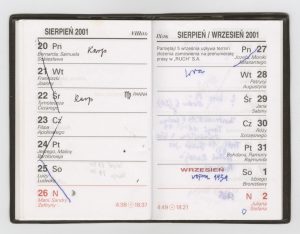 SIERPIEŃ 2001
20 Pn
Bernarda, Samuela
Sobiesława
21 Wt
Franciszka
Joanny
22 Śr
Tymoteusza
Cezarego
PANNA
23 Cz
Filipa
Apolinarego
24 Pt
Jerzego, Maliny
Bartłomieja
25 So
Luizy
Ludwika
26 N
Marii, Sandry
Zefiryny
4:39 18:37
SIERPIEŃ / WRZESIEŃ 2001
Pamiętaj! 5 września upływa termin
złożenia zamówienia na prenumeratę
prasy w „RUCH” S.A.
Pn 27
Józefa, Moniki
Wt 28
Patrycji
Augustyna
Śr 29
Jana
Sabiny
Cz 30
Róży
Szczęsnego
Pt 31
Bohdana, Ramony
Rajmunda
WRZESIEŃ
So 1
Idziego
Bronisławy
wojna 1939
N 2
Juliana
Stefana
4:49 18:21